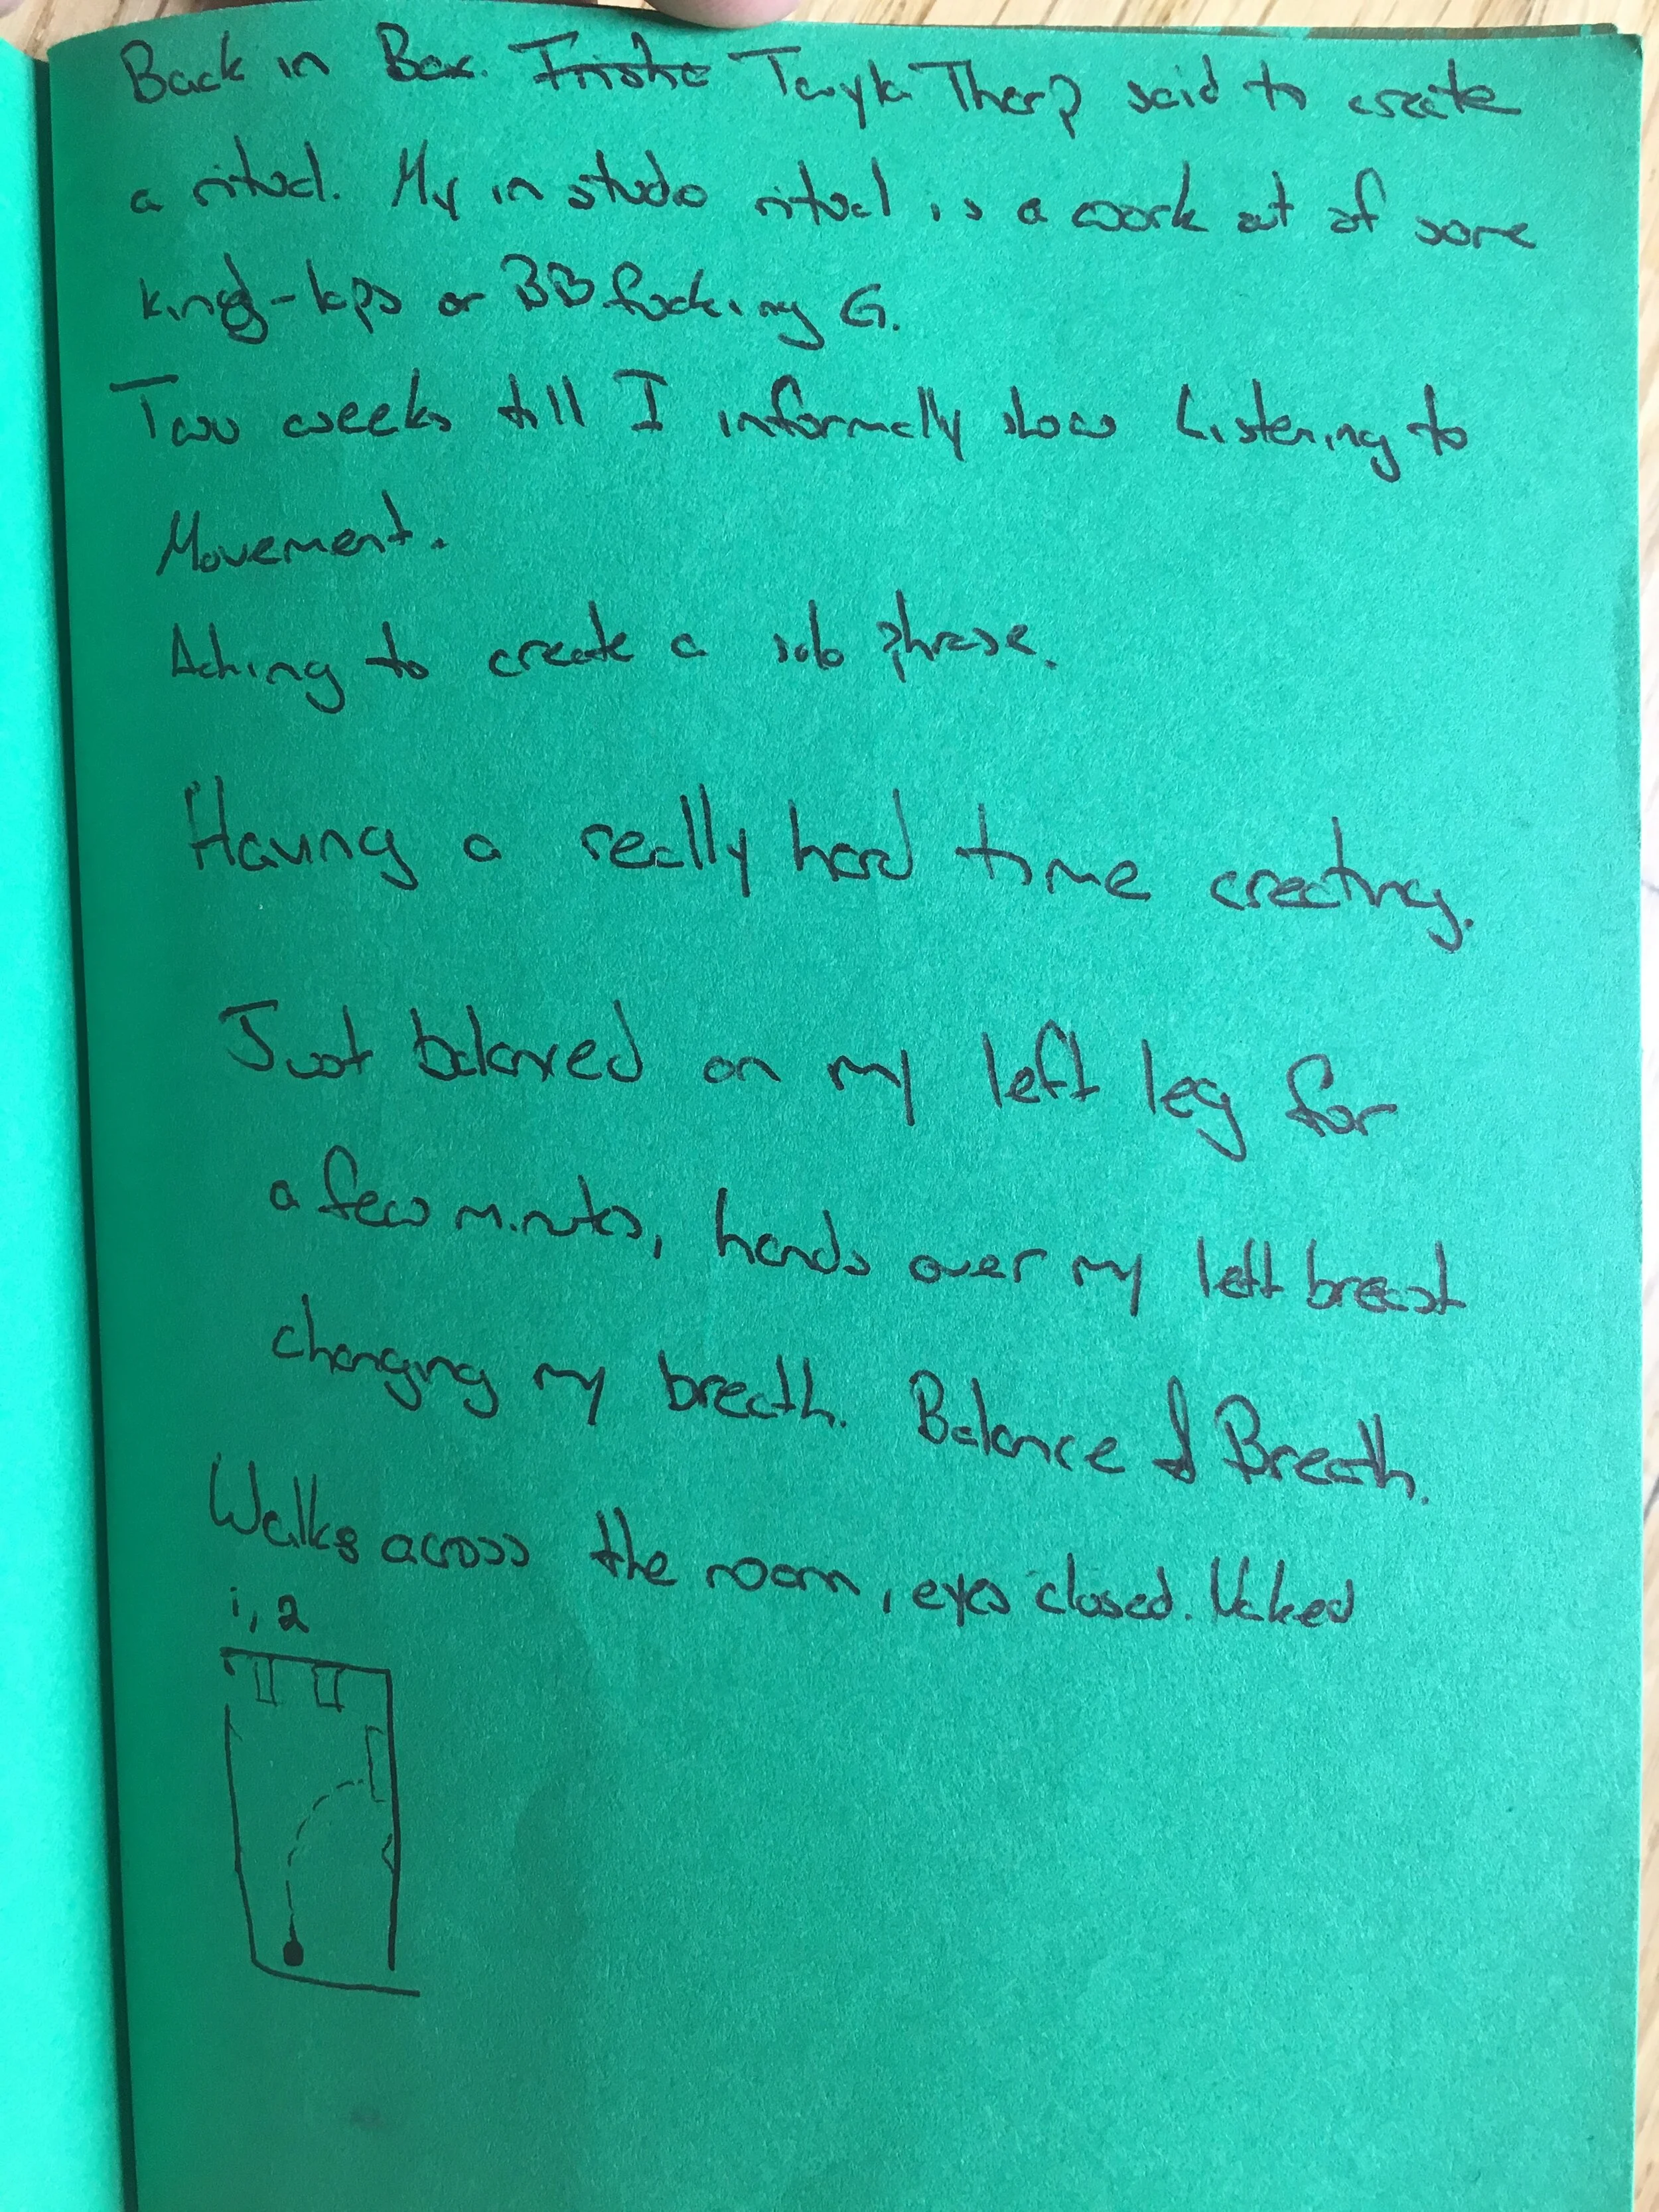 Back in Box. Twyla Tharp said to create
a ritual. My in studo ritual is a work out of some
kind - laps or BB fucking G.
Two weeks till I informally show Listening to
Movement.
Aching to create a solo phrase.
Having a really hard time creating.
Just balanced on my left leg for
a few minutes, hands over my left breast
changing my breath. Balance & Breath.
Walks across the room, eyes closed. Naked
1, 2